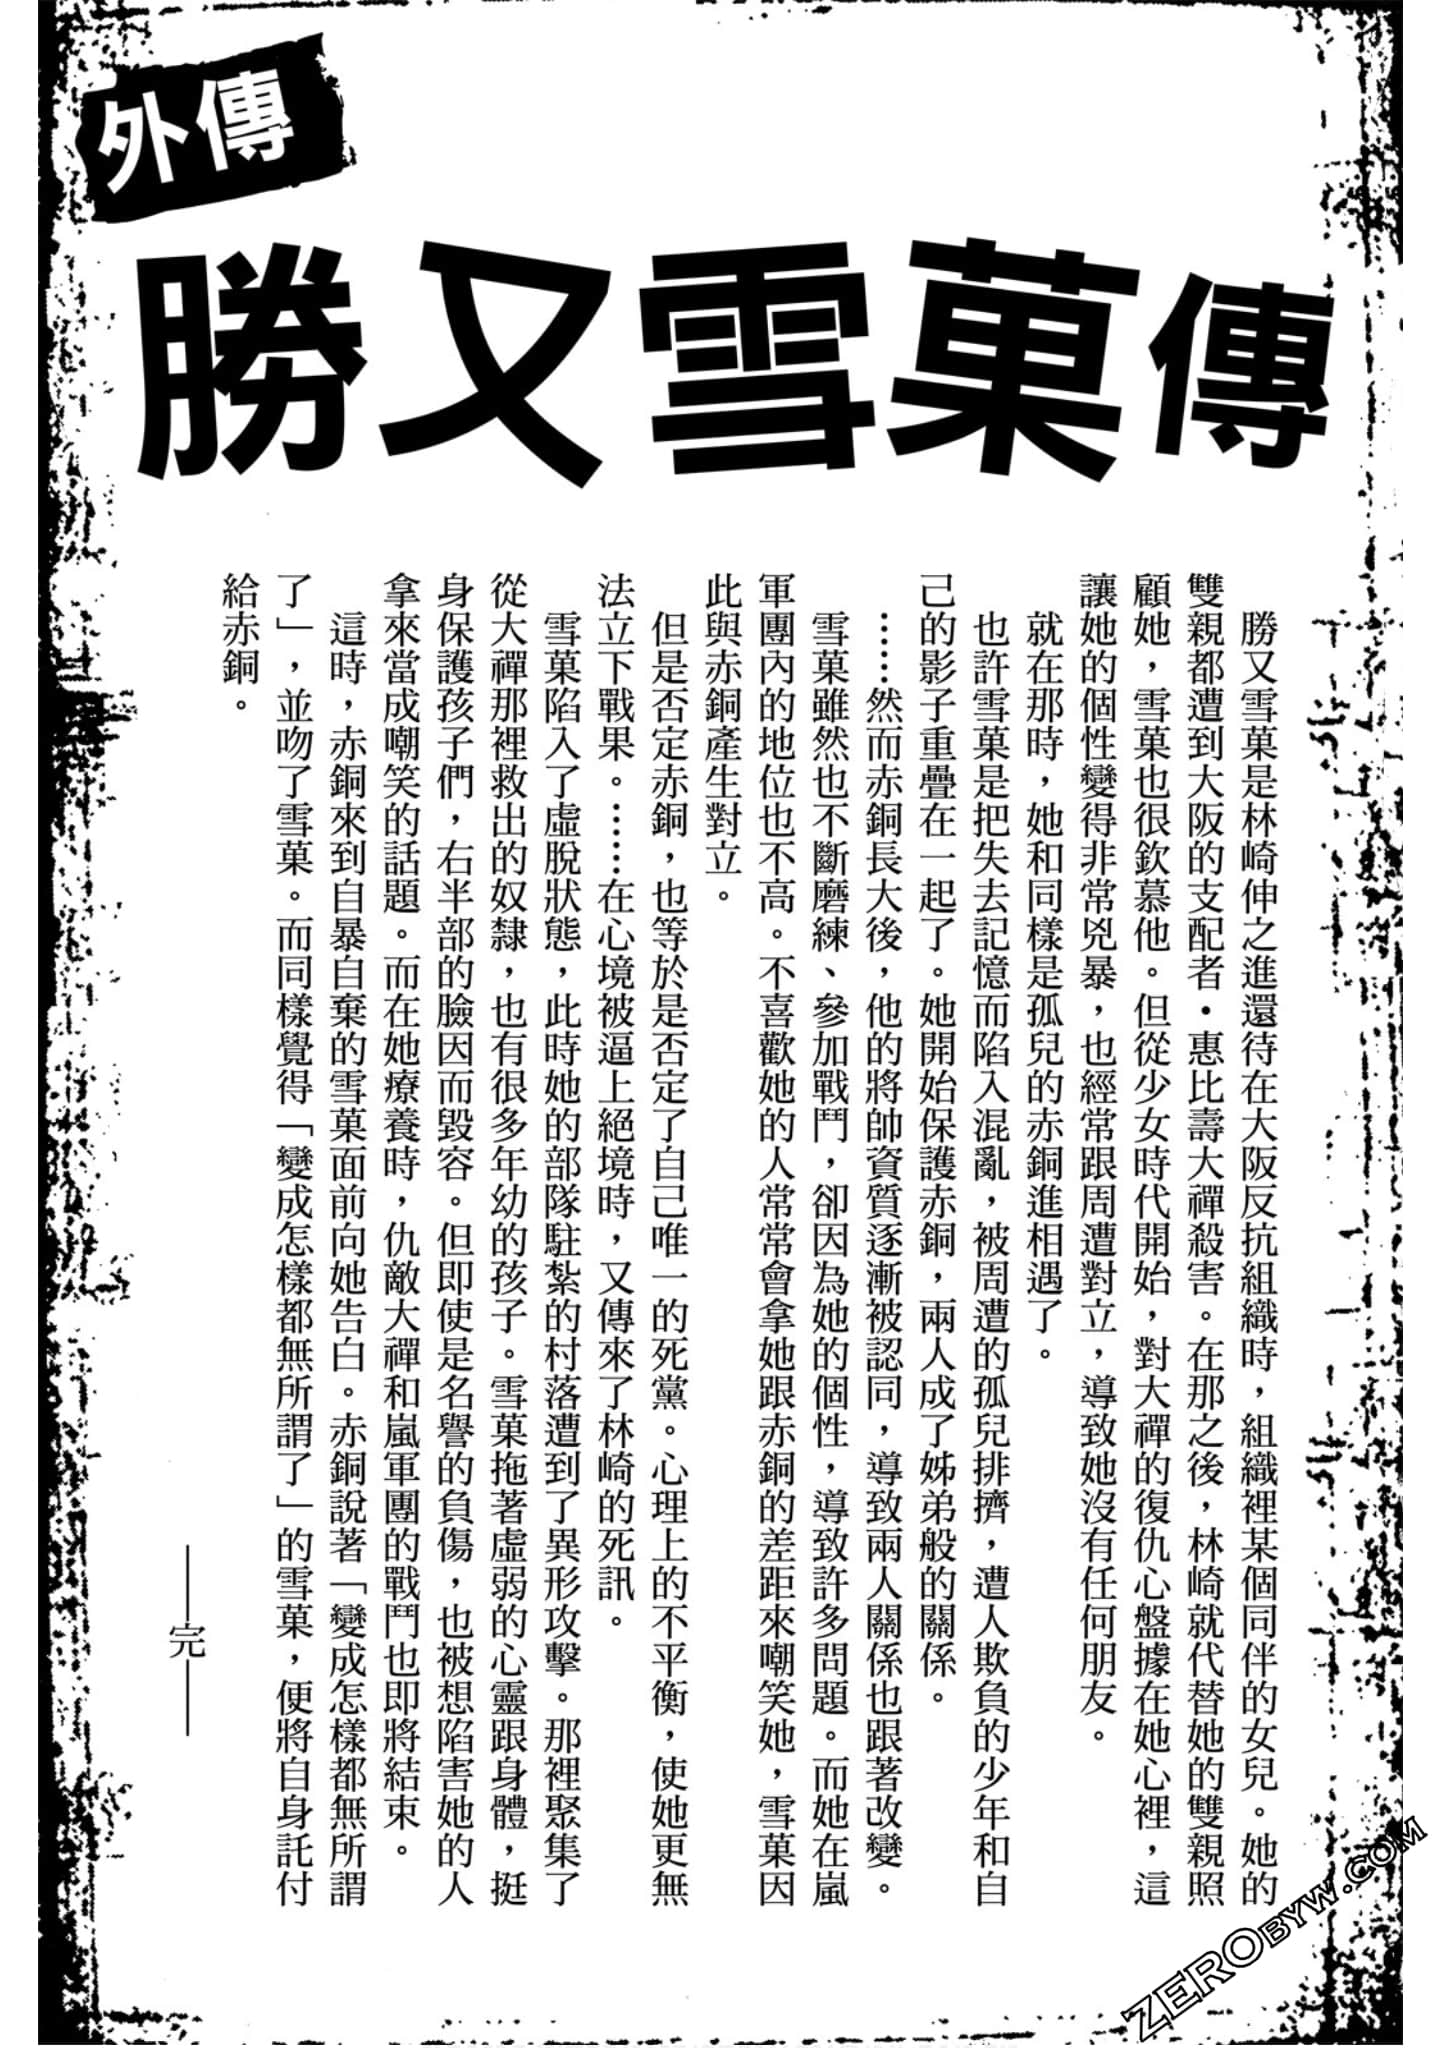 外傳
勝又雪菓傳
勝又雪菓是林崎伸之進還待在大阪反抗組織時，組織裡某個同伴的女兒。她的
雙親都遭到大阪的支配者・惠比壽大禪殺害。在那之後，林崎就代替她的雙親照
顧她，雪菓也很欽慕他。但從少女時代開始，對大禪的復仇心盤據在她心裡，這
讓她的個性變得非常兇暴，也經常跟周遭對立，導致她沒有任何朋友。
就在那時，她和同樣是孤兒的赤銅進相遇了。
也許雪菓是把失去記憶而陷入混亂，被周遭的孤兒排擠，遭人欺負的少年和自
己的影子重疊在一起了。她開始保護赤銅，兩人成了姊弟般的關係。
……然而赤銅長大後，他的將帥資質逐漸被認同，導致兩人關係也跟著改變。
雪菓雖然也不斷磨練、參加戰鬥，卻因為她的個性，導致許多問題。而她在嵐
軍團內的地位也不高。不喜歡她的人常常會拿她跟赤銅的差距來嘲笑她，雪菓因
此與赤銅產生對立。
但是否定赤銅，也等於是否定了自己唯一的死黨。心理上的不平衡，使她更無
法立下戰果。……在心境被逼上絕境時，又傳來了林崎的死訊。
雪菓陷入了虛脫狀態，此時她的部隊駐紮的村落遭到了異形攻擊。那裡聚集了
從大禪那裡救出的奴隸，也有很多年幼的孩子。雪菓拖著虛弱的心靈跟身體，挺
身保護孩子們，右半部的臉因而毀容。但即使是名譽的負傷，也被想陷害她的人
拿來當成嘲笑的話題。而在她療養時，仇敵大禪和嵐軍團的戰鬥也即將結束。
這時，赤銅來到自暴自棄的雪菓面前向她告白。赤銅說著「變成怎樣都無所謂
了」，並吻了雪菓。而同樣覺得「變成怎樣都無所謂了」的雪菓，便將自身託付
給赤銅。
——完——
ZEROBYW.COM